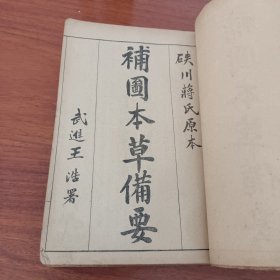 硖川蔣氏原本
補圖本草備要
武進王浩署